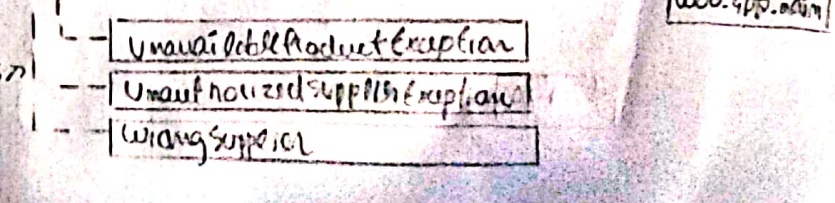 UnavailableProductException
UnauthorizedSupplierException
WrongSupplier